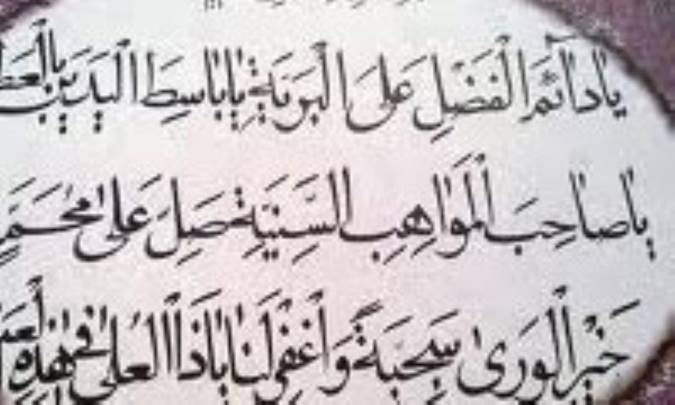 يا دائم الفضل على البرية يا باسط اليدين
يا صاحب المواهب السنية صل على
خير الورى سجية واغفر لنا يا ذا العلى في هذه